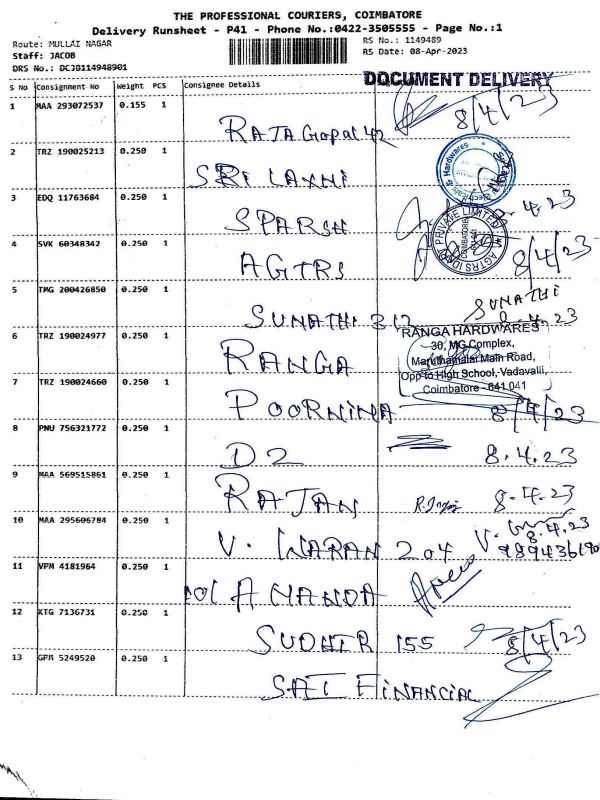 THE PROFESSIONAL COURIERS, COIMBATORE
Delivery Runsheet - P41 - Phone No.:0422-3505555 - Page No.:1
Route: MULLAI NAGAR
RS No.: 1149489
Staff: JACOB
RS Date: 08-Apr-2023
DRS No.: DCJ0114948901
DOCUMENT DELIVERY
S No Consignment No Weight PCS Consignee Details
1 MAA 293072537 0.155 1
RAJA Gopal 42 8/4/23
2 TRZ 190025213 0.250 1
SRI LAXMI
3 EDQ 11763684 0.250 1
SPARSH 8.4.23
4 SVK 60348342 0.250 1
AGTRS 8/4/23
PRIVATE LIMITED
COIMBATORE
5 TMG 200426850 0.250 1
SUNATHI
SUNATHI 312 8.4.23
6 TRZ 190024977 0.250 1
RANGA
RANGA HARDWARES
30, MG Complex,
Maruthamalai Main Road,
Opp to High School, Vadavalli,
Coimbatore - 641 041
7 TRZ 190024660 0.250 1
POORNIMA 8/4/23
8 PNU 756321772 0.250 1
D2 8.4.23
9 MAA 569515861 0.250 1
RAJAN 8.4.23
10 MAA 295606784 0.250 1
8.4.23
V. WARAN 204
11 VPM 4181964 0.250 1
101 AMANDA
12 KTG 7136731 0.250 1
SUDHIR 155 8/4/23
13 GPM 5249520 0.250 1
SAI FINANCIAL